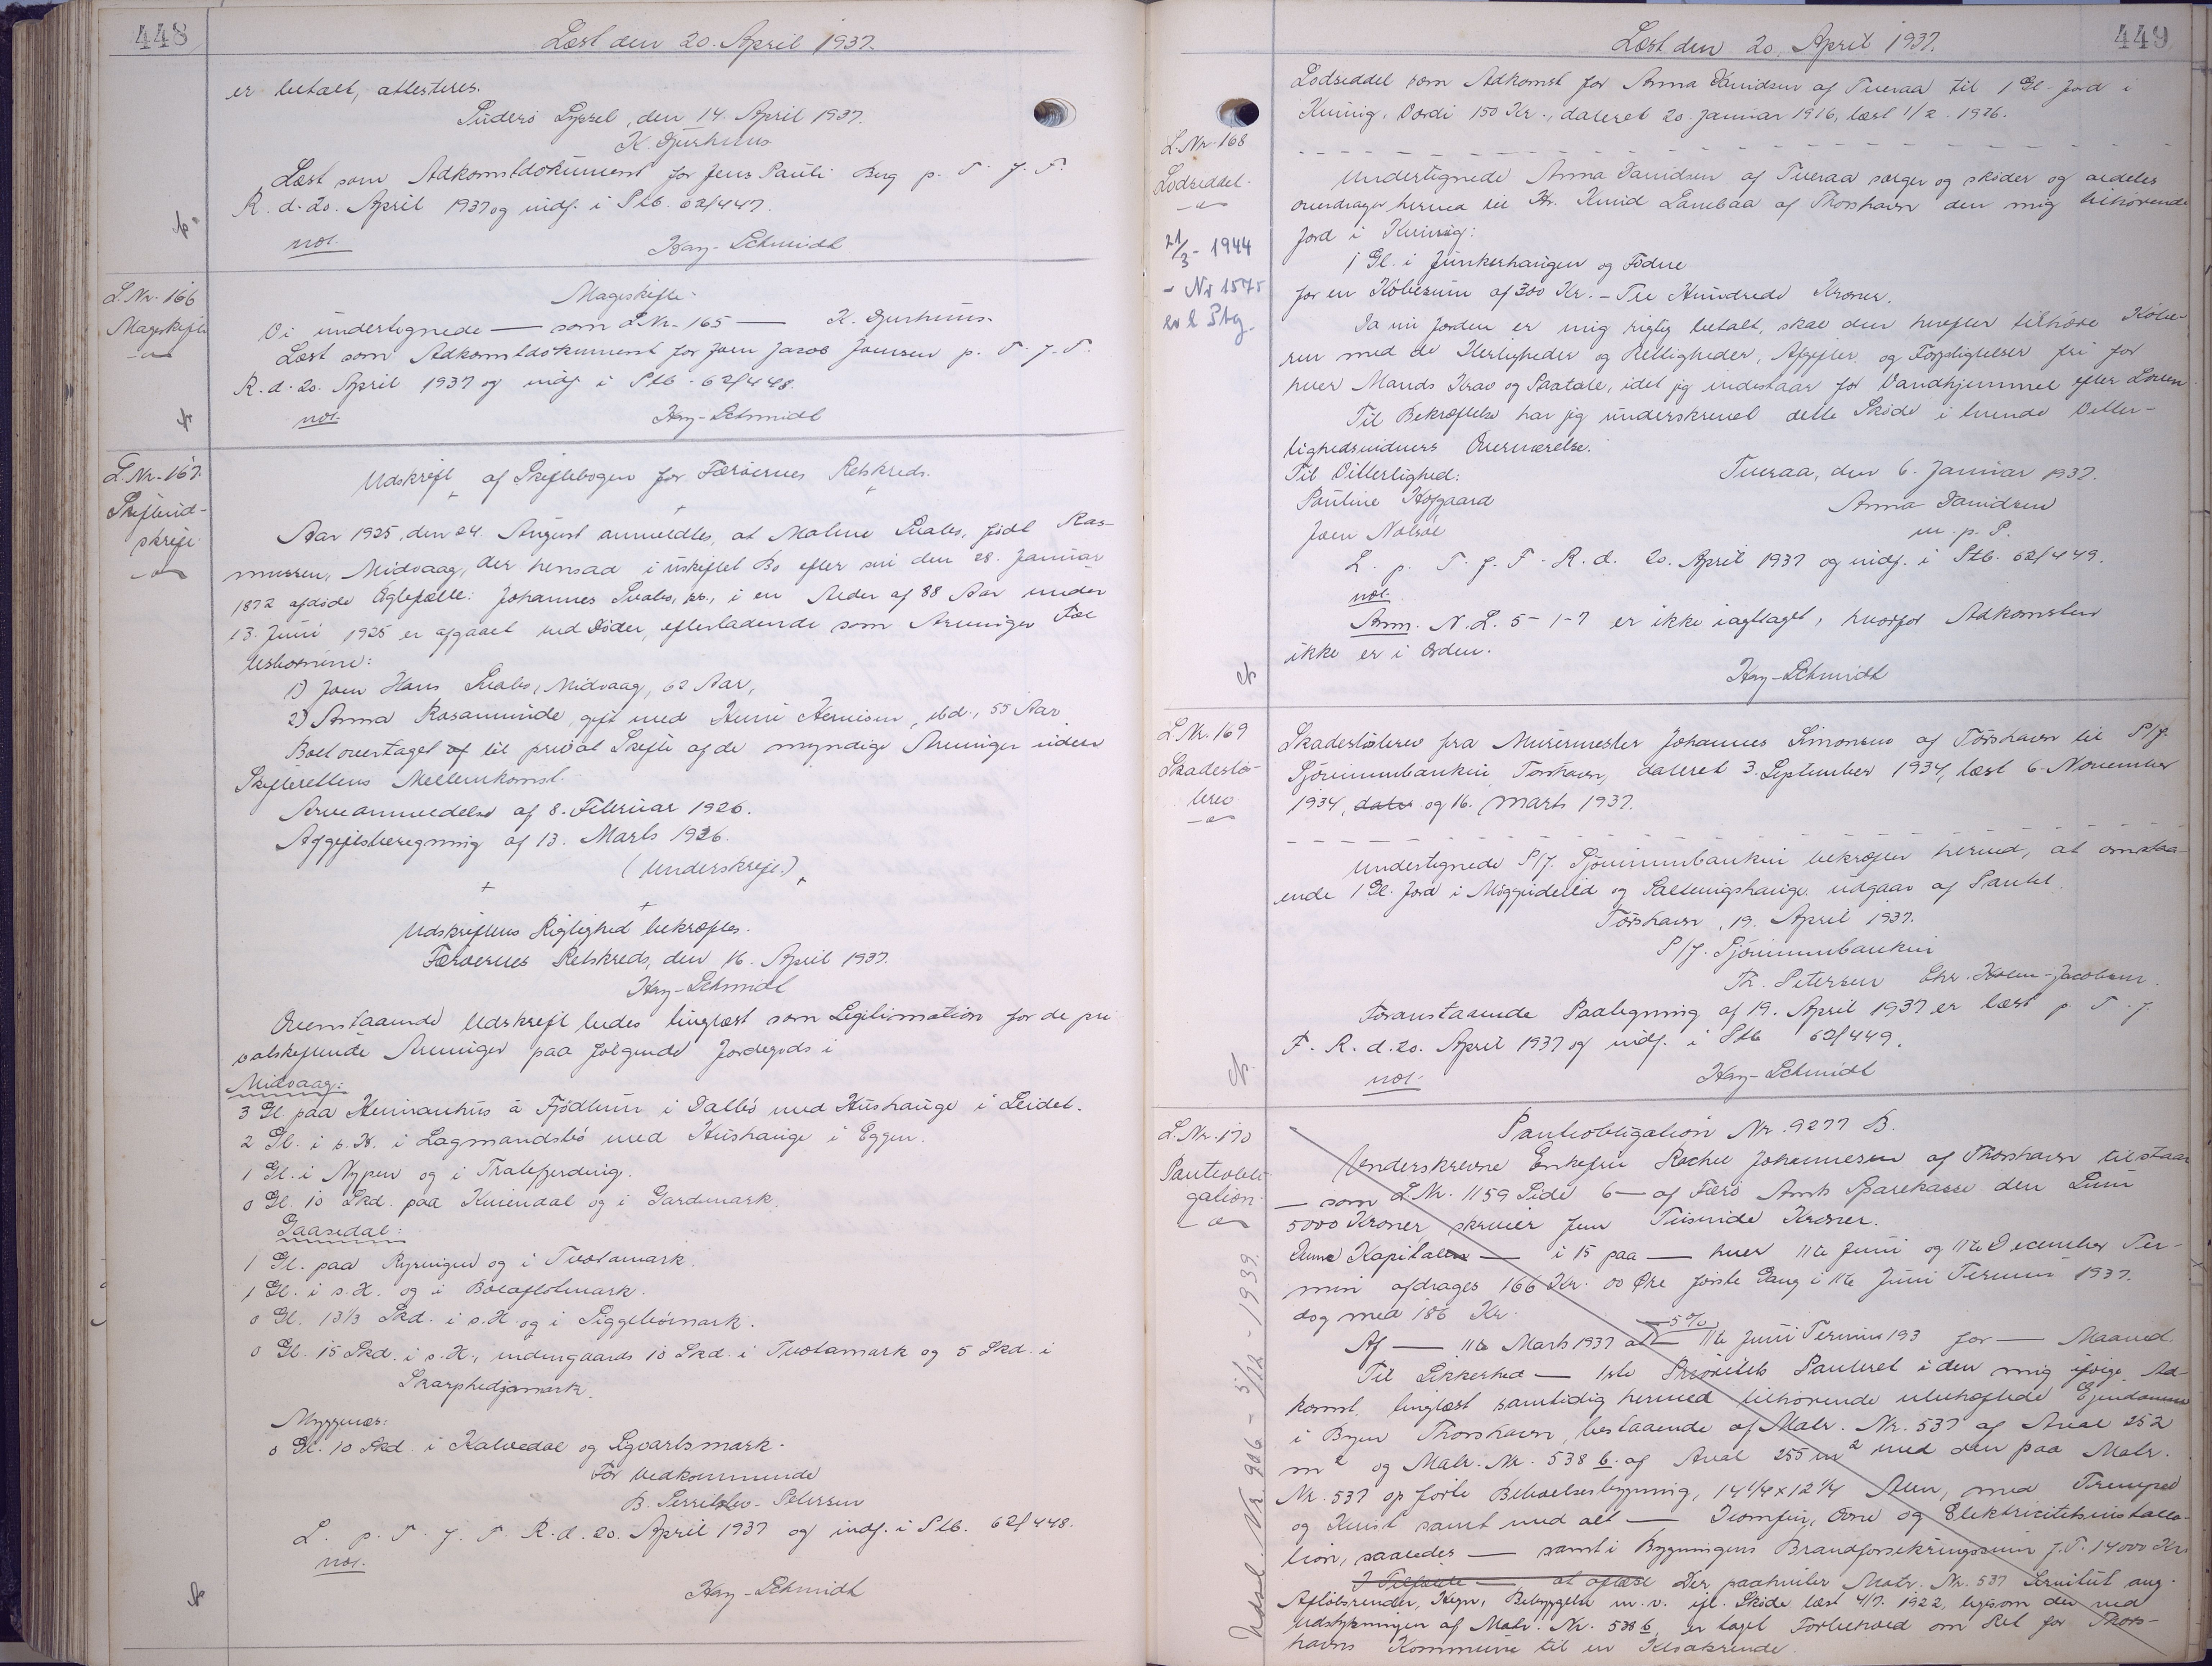 448
Læst den 20. April 1937.
er betalt, attesteres.
Suderø Syssel, den 14. April 1937.
K. Djurhuus
Læst som Adkomstdokument for Jens Pauli Berg p. T. f. F.
R. d. 20. April 1937 og indf. i Ptb. 62/447.
not.
Hay-Schmidt
L. Nr. 166
Mageskifte
Mageskifte.
Vi undertegnede — som L Nr. 165 — K. Djurhuus.
Læst som Adkomstdokument for Joen Jacob Joensen p. T. f. F.
R. d. 20. April 1937 og indf. i Ptb. 62/448.
not.
Hay-Schmidt
L. Nr. 167.
Skifteud-
skrift
Udskrift af Skiftebogen for Færøernes Retskreds.
Aar 1925, den 24. August anmeldtes, at Malene Svabo, født Ras-
mussen, Midvaag, der hensad i uskiftet Bo efter sin den 28. Januar
1872 afdøde Ægtefælle: Johannes Svabo, ss., i en Alder af 88 Aar under
13. Juni 1925 er afgaaet ved Døden, efterladende som Arvinger
Børnene:
1) Joen Hans Svabo, Midvaag, 62 Aar,
2) Anna Rosamunde, gift med Heini Heinisen, ibd., 55 Aar.
Boet overtaget af til privat Skifte af de myndige Arvinger uden
Skifterettens Mellemkomst.
Arveanmeldelse af 8. Februar 1926.
Afgiftsberegning af 13. Marts 1926.
(Underskrift.)
Udskriftens Rigtighed bekræftes.
Færøernes Retskreds, den 16. April 1937.
Hay-Schmidt
Ovenstaaende Udskrift bedes tinglæst som Legitimation for de pri-
vatskiftende Arvinger paa følgende Jordegods i
Midvaag:
3 Gl. paa Heinanhus á Fjødlum i Dalbø med Hushauge i Leidet.
2 Gl. i s. H. i Lagmandsbø med Hushauge i Eggen.
1 Gl. i Nypen og i Tralefjerding.
0 Gl. 10 Skd. paa Kvien­dal og i Gardemark.
Gaasedal:
1 Gl. paa Ryningen og i Tvotamark.
1 Gl. i s. H. og i Bolaflotmark.
0 Gl. 13 1/3 Skd. i s. H. og i Siggebørnark.
0 Gl. 15 Skd. i s. H., indengaards 10 Skd. i Tvotamark og 5 Skd. i
Skarphedjamark.
Myggenæs:
0 Gl. 10 Skd. i Kalvedal og Sigvartsmark.
For Vedkommende
B. Serritslev-Petersen
L. p. T. f. F. R. d. 20. April 1937 og indf. i Ptb. 62/448.
not.
Hay-Schmidt
449
Læst den 20. April 1937.
Lodseddel som Adkomst for Anna Davidsen af Tveraa til 1 Gl. Jord i
Kvivig, Værdi 150 Kr., dateret 20. Januar 1916, læst 1/2. 1926.
L. Nr. 168
Lodseddel.
21/3 - 1944
- Nr 1575
Undertegnede Anna Davidsen af Tveraa sælger og skøder og aldeles
overdrager herved til Hr. Knud Lambaa af Thorshavn den mig tilhørende
Jord i Kvivig:
1 Gl. i Junkerhaugen og Fodne
for en Købesum af 300 Kr. – Tre Hundrede Kroner.
Da nu Jorden er mig rigtig betalt, skal den herefter tilhøre Købe-
ren med de Herligheder og Rettigheder, Afgifter og Forpligtelser fri for
hver Mands Krav og Paatale, idet jeg indestaar for Vandhjemmel efter Loven.
Til Bekræftelse har jeg underskrevet dette Skøde i tvende Vitter-
lighedsvidners Overværelse.
Til Vitterlighed:
Tveraa, den 6. Januar 1937.
Pauline Hofgaard
Anna Davidsen
Joen Nolsøe
m. p. P.
L. p. T. f. F. R. d. 20. April 1937 og indf. i Ptb. 62/449.
not.
Anm. N. L. 5-1-7 er ikke iagttaget, hvorfor Adkomsten
ikke er i Orden.
Hay-Schmidt
L Nr. 169
Skadesløs-
brev
Skadesløsbrev fra Murermester Johannes Simonsen af Tórshavn til P/f.
Sjóvinnubankin, Torshavn, dateret 3. September 1934, læst 6. November
1934, dater og 16. Marts 1937.
Undertegnede P/f. Sjóvinnubankin bekræfter herved, at omstaa-
ende 1 Gl. Jord i og udgaar af Pantet.
Tórshavn, 19. April 1937.
P/f. Sjóvinnubankin
Th. Petersen Chr. Holm-Jacobsen.
Foranstaaende Paategning af 19. April 1937 er læst p. T. f.
F. R. d. 20. April 1937 og indf. i Ptb 62/449.
not.
Hay-Schmidt
L. Nr. 170
Panteobli-
gation.
Udsl. Nr. 906 - 5/12 - 1939.
Panteobligation Nr. 9277 B.
Underskrevne Enkefru Rachel Johannesen af Thorshavn tilstaar
— som L. Nr. 1159 Side 6 — af Færø Amts Sparekasse den Sum
5000 Kroner, skriver fem Tusinde Kroner.
Denne Kapitalen — i 15 paa — hver 11te Juni og 11te December Ter-
min afdrages 166 Kr. 00 Øre første Gang i 11te Juni Termin 1937.
dog med 186 Kr.
Af — 11te Marts 1937 at — 5% 11te Juni Termin 193 for — Maaned.
Til Sikkerhed — 1ste Prioritets Panteret i den mig ifølge Ad-
komst, tinglæst samtidig hermed tilhørende ubehæftede Ejendomme
i Byen Thorshavn, bestaaende af Matr. Nr. 537 af Areal 252
m2 og Matr. Nr. 538 b. af Areal 255 m2 med den paa Matr.
Nr. 537 opførte Beboelsesbygning, 14 1/4 x 12 1/4 Alen, med Trempel
og Kvist samt med alt — Komfur, Ovne og Elektricitetsinstalla-
tion, saaledes — samt i Bygningens Brandforsikringssum f. T. 14000 Kr.
I Tilfælde — at oplæst Der paahviler Matr. Nr. 537 Servitut ang.
Afløbsrender, Hegn, Bebyggelse m. v. ifl. Skøde læst 4/7. 1922, ligesom der ved
Udstykningen af Matr. Nr. 538 b, er taget Forbehold om Ret for Thors-
havns Kommune til en Kloakrende.